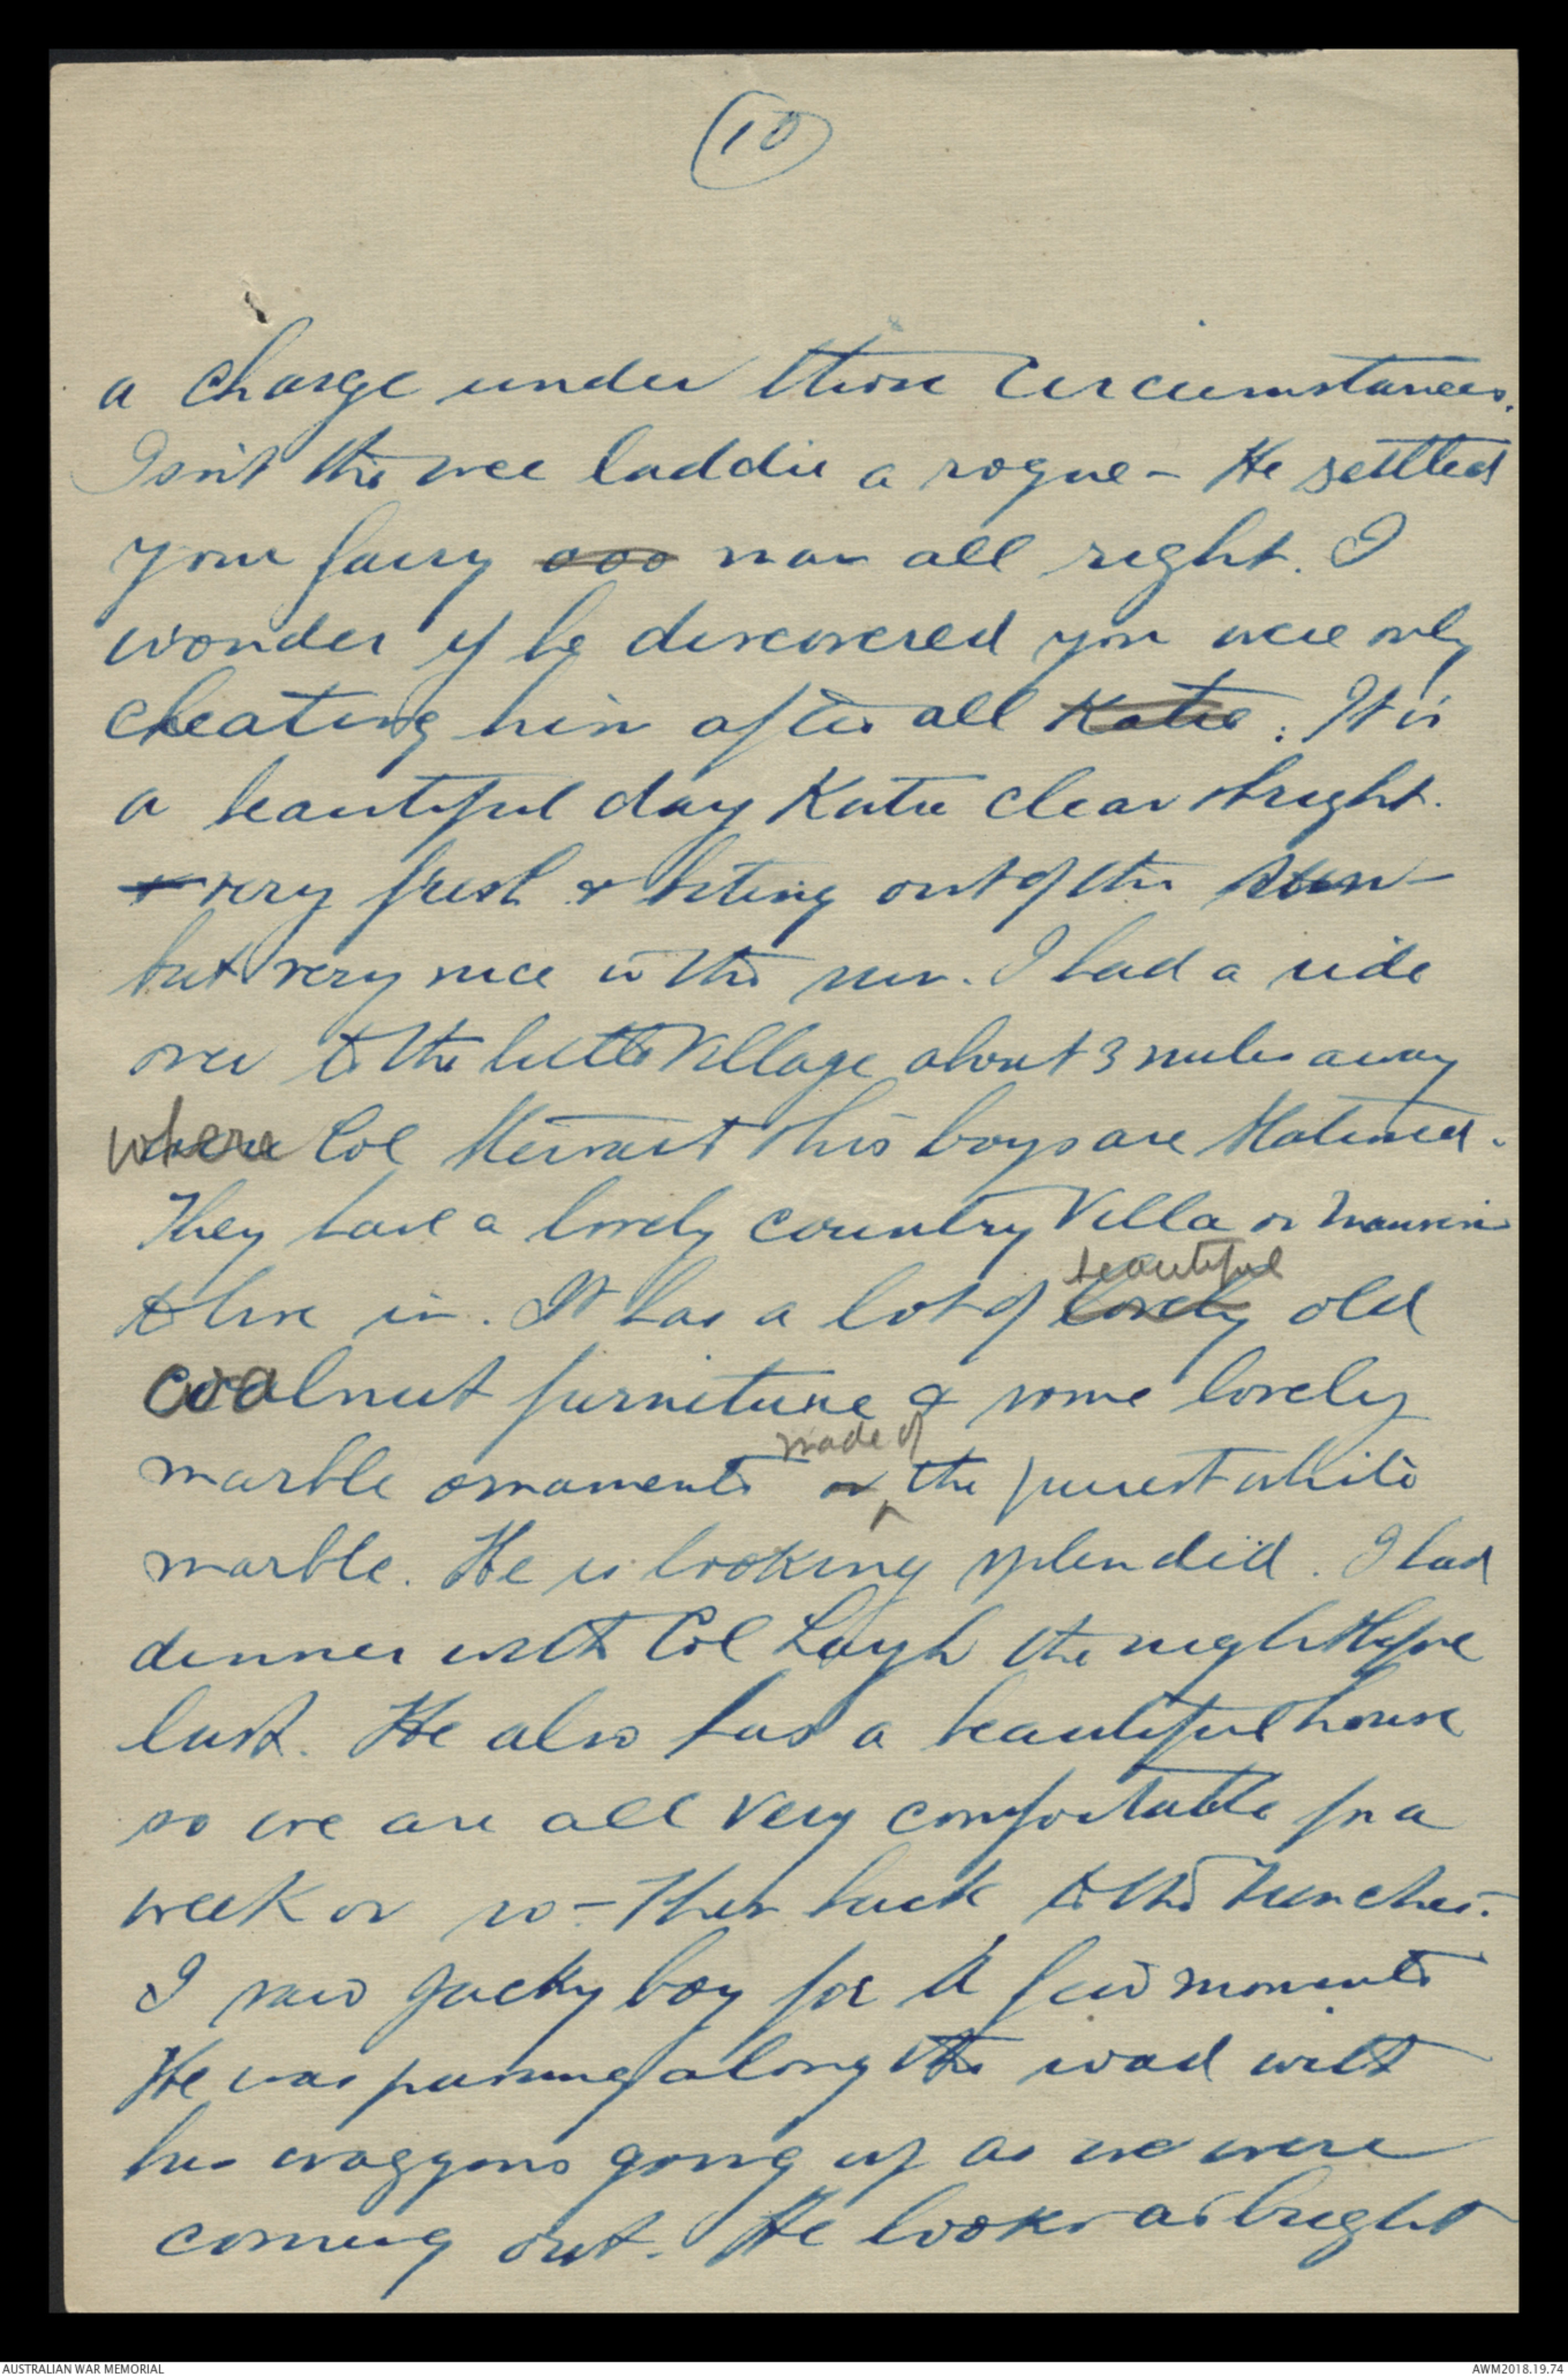 (10)
a charge under those circumstances.
Isn't the wee laddie a rogue - He settled
your fairy man all right. I
wonder if he discovered you were only
cheating him after all Katie. It is
a beautiful day Katie clear & bright.
& very fresh & biting out of the sun -
but very nice in the sun. I had a ride
over to the little Village about 3 miles away
where Col Stewart & his boys are stationed.
They have a lovely country Villa or mansion
to live in. It has a lot of lovely beautiful old
walnut furniture & some lovely
marble ornaments or made of the purest white
marble. He is looking splendid. I had
dinner with Col the night before
last. He also has a beautiful house
so we are all very comfortable for a
week or so - Then back to the trenches.
I saw Jacky boy for a few moments
He was passing along the road with
his waggons going up as we were
coming out. He looks as bright
AUSTRALIAN WAR MEMORIAL
AWM2018.19.74